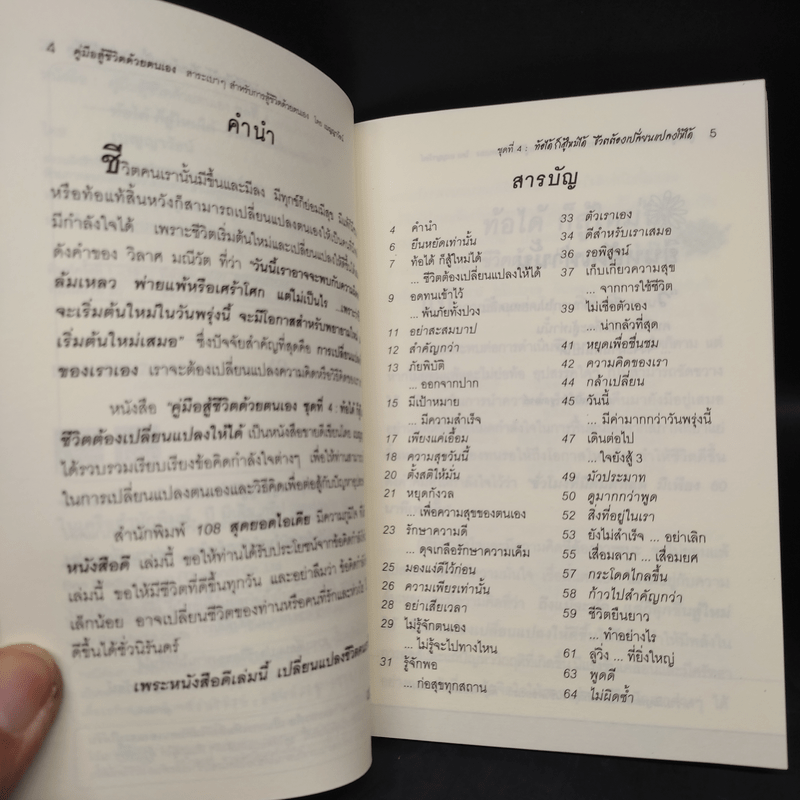 4 คู่มือสู้ชีวิตด้วยตนเอง สาระเบาๆ สำหรับการสู้ชีวิตด้วยตนเอง โดย
คำนำ
ชีวิตคนเรานั้นมีขึ้นและมีลง มีทุกข์ก็ย่อมมีสุข
หรือท้อแท้สิ้นหวังก็สามารถเปลี่ยนแปลงตนเองให้เป็น
มีกำลังใจได้ เพราะชีวิตเริ่มต้นใหม่และเปลี่ยนแปลงให้ดีขึ้น
ดังคำของ วิลาศ มณีวัต ที่ว่า "วันนี้เราอาจจะพบกับความ
ล้มเหลว พ่ายแพ้หรือเศร้าโศก แต่ไม่เป็นไร ...เพราะ
จะเริ่มต้นใหม่ในวันพรุ่งนี้ จะมีโอกาสสำหรับพยายาม
เริ่มต้นใหม่เสมอ" ซึ่งปัจจัยสำคัญที่สุดคือ การเปลี่ยนแปลง
ของเราเอง เราจะต้องเปลี่ยนแปลงความคิดหรือวิธีคิดของ
หนังสือ "คู่มือสู้ชีวิตด้วยตนเอง ชุดที่ 4 : ท้อได้
ชีวิตต้องเปลี่ยนแปลงให้ได้ เป็นหนังสือขายดีเขียนโดย
ได้รวบรวมเรียบเรียงข้อคิดกำลังใจต่างๆ เพื่อให้ท่าน
ในการเปลี่ยนแปลงตนเองและวิธีคิดเพื่อต่อสู้กับปัญหา
สำนักพิมพ์ 108 สุดยอดไอเดีย มีความภูมิใจ
หนังสือดี เล่มนี้ ขอให้ท่านได้รับประโยชน์จากข้อคิด
เล่มนี้ ขอให้มีชีวิตที่ดีขึ้นทุกวัน และอย่าลืมว่า ข้อคิด
เล็กน้อย อาจเปลี่ยนชีวิตของท่านหรือคนที่รัก
ดีขึ้นได้ชั่วนิรันดร์
เพราะหนังสือดีเล่มนี้ เปลี่ยนแปลงชีวิต
ชุดที่ 4 : ท้อได้ ก็สู้ใหม่ได้ ชีวิตต้องเปลี่ยนแปลงให้ได้ 5
สารบัญ
4 คำนำ
6 ยืนหยัดเท่านั้น
7 ท้อได้ ก็สู้ใหม่ได้
... ชีวิตต้องเปลี่ยนแปลงให้ได้
9 อดทนเข้าไว้
... พ้นภัยทั้งปวง
11 อย่าสะสมบาป
12 สำคัญกว่า
13 ภัยพิบัติ
... ออกจากปาก
15 มีเป้าหมาย
... มีความสำเร็จ
17 เพียงแค่เอื้อม
18 ความสุขวันนี้
20 ตั้งสติให้มั่น
21 หยุดกังวล
... เพื่อความสุขของตนเอง
23 รักษาความดี
... ดุจเกลือรักษาความเค็ม
25 มองแง่ดีไว้ก่อน
26 ความเพียรเท่านั้น
28 อย่าเสียเวลา
29 ไม่รู้จักตนเอง
... ไม่รู้จะไปทางไหน
31 รู้จักพอ
... ก่อสุขทุกสถาน
33 ตัวเราเอง
34 ดีสำหรับเราเสมอ
36 รอพิสูจน์
37 เก็บเกี่ยวความสุข
... จากการใช้ชีวิต
39 ไม่เชื่อตัวเอง
... น่ากลัวที่สุด
41 หยุดเพื่อชื่นชม
42 ความคิดของเรา
44 กล้าเปลี่ยน
45 วันนี้
... มีค่ามากกว่าวันพรุ่งนี้
47 เดินต่อไป
... ใจยังสู้ 3
49 มัวประมาท
50 ดูมากกว่าพูด
52 สิ่งที่อยู่ในเรา
53 ยังไม่สำเร็จ ... อย่าเลิก
55 เสื่อมลาภ ... เสื่อมยศ
57 กระโดดไกลขึ้น
58 ก้าวไปสำคัญกว่า
59 ชีวิตยืนยาว
... ทำอย่างไร
61 ลู่วิ่ง ... ที่ยิ่งใหญ่
63 พูดดี
64 ไม่ผิดซ้ำ